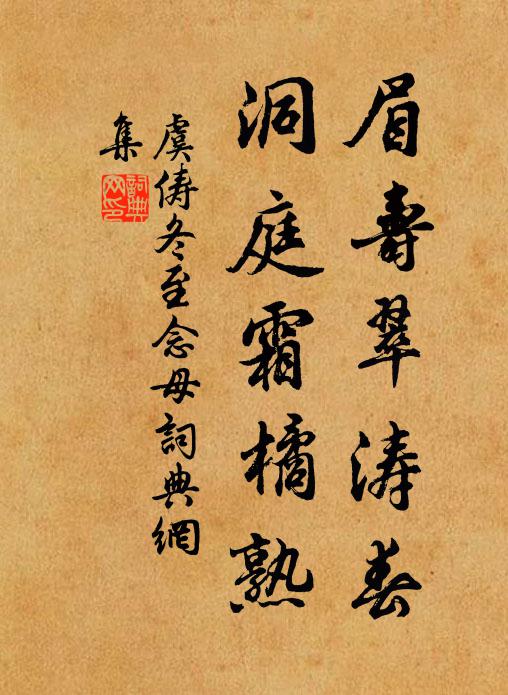 眉壽翠濤春
洞庭霜橘熟
虞儔冬至念母詞典網
集
詞典网印